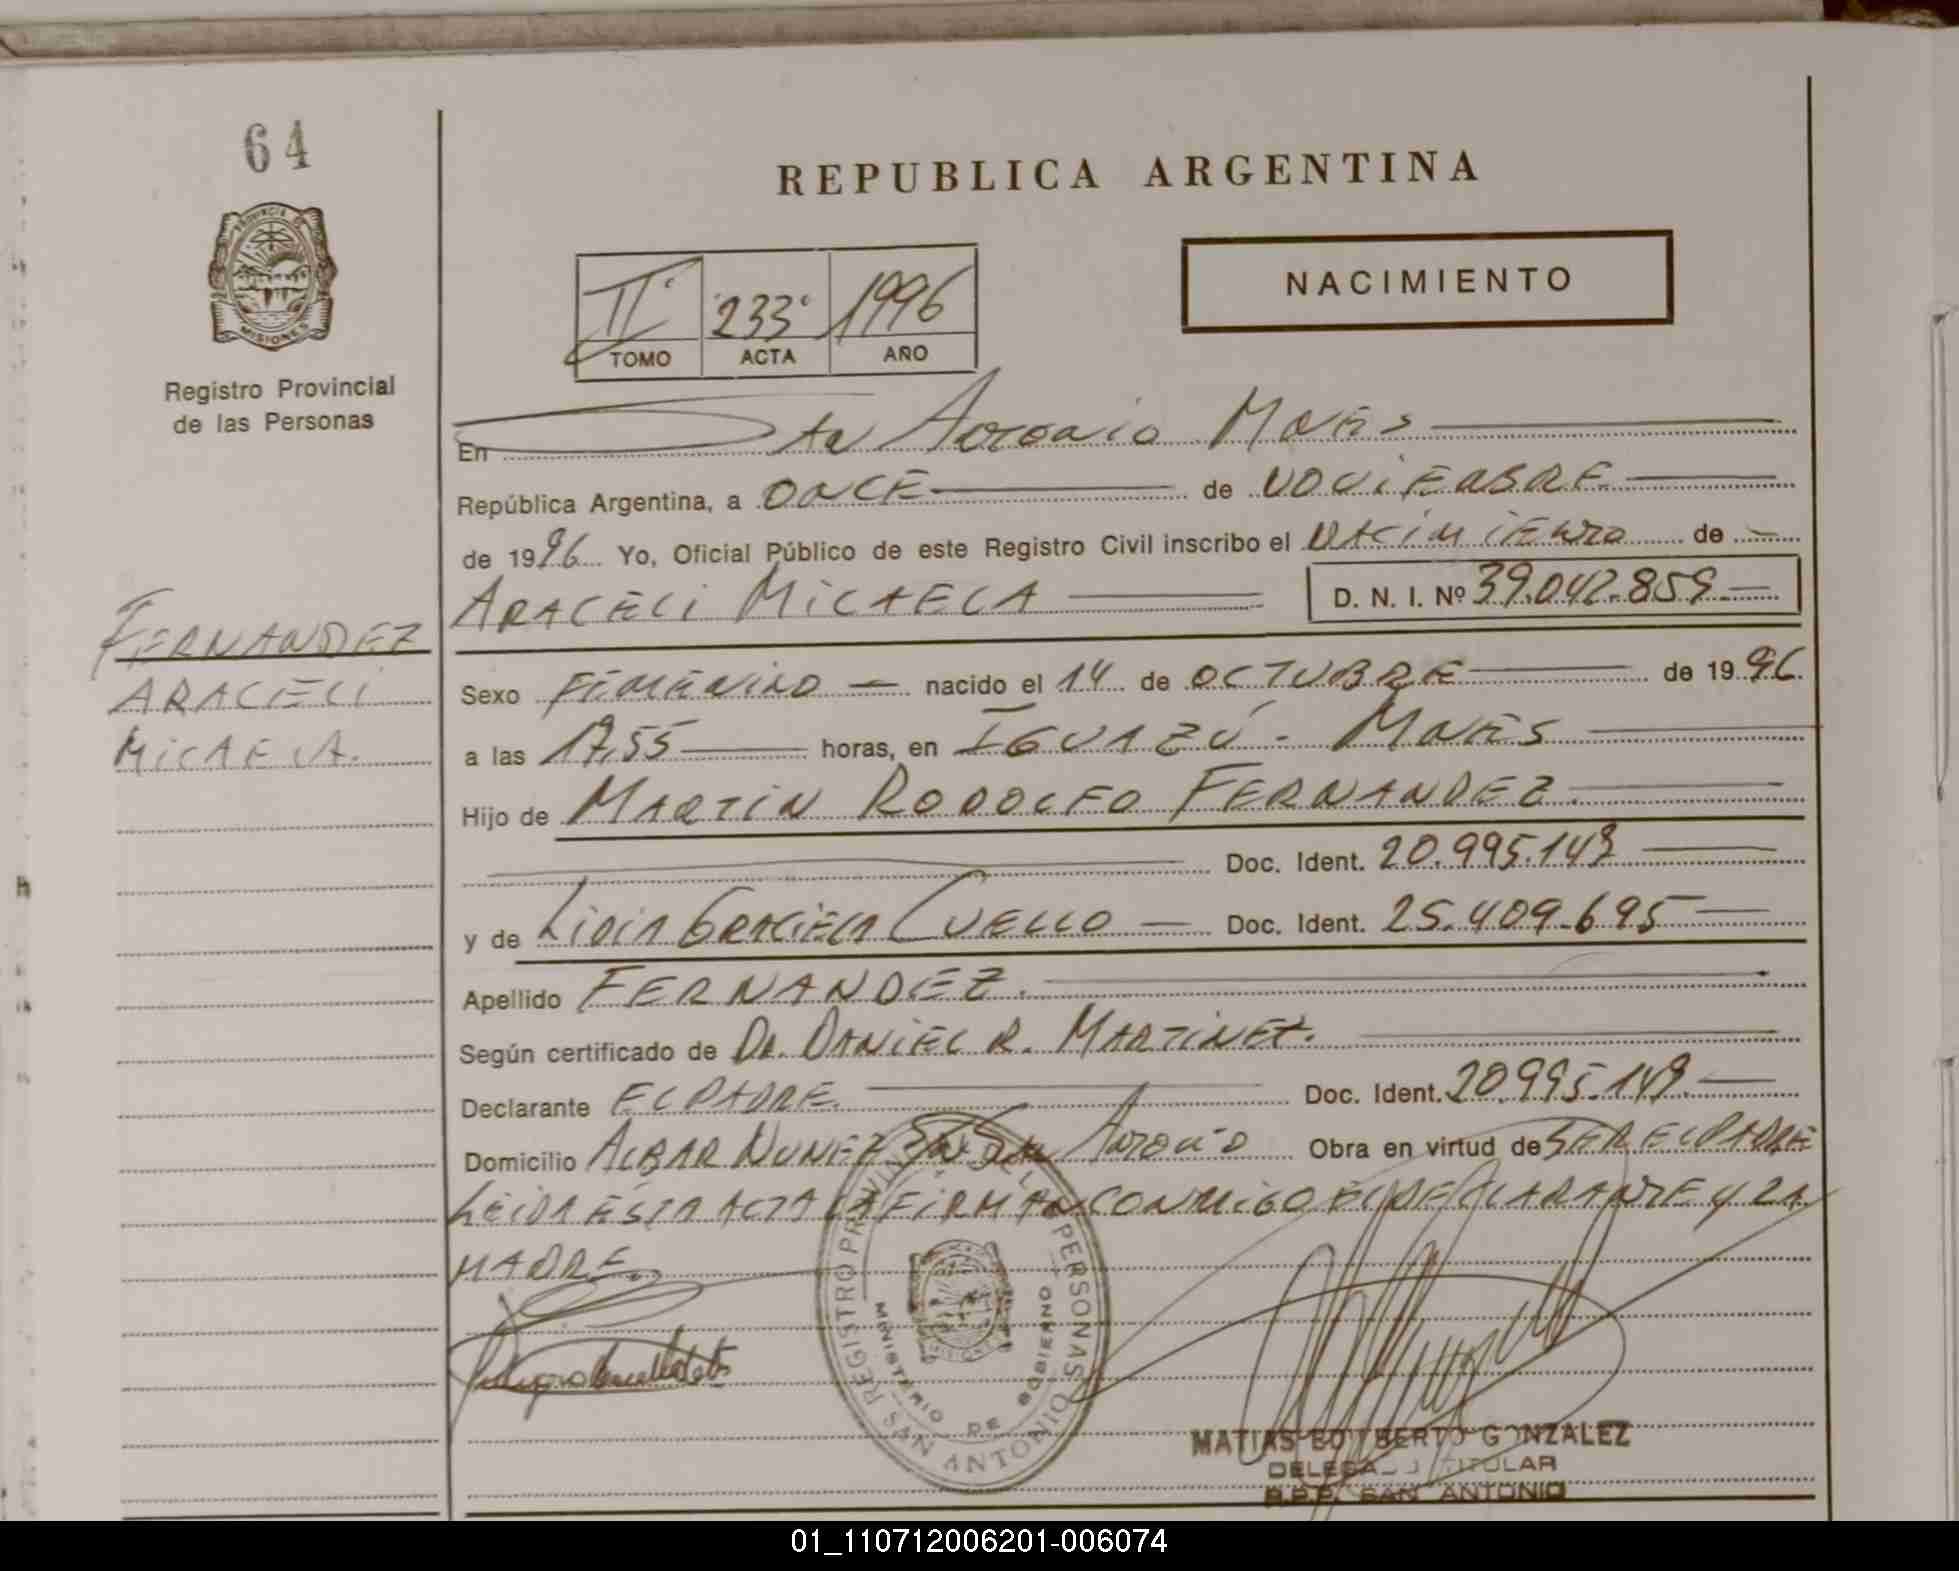 64
REPUBLICA ARGENTINA
PROVINCIA DE
MISIONES
NACIMIENTO
II° 233° 1996
TOMO ACTA AÑO
Registro Provincial
de las Personas
En San Antonio Mnes
República Argentina, a ONCE de NOVIEMBRE
de 1996 Yo, Oficial Público de este Registro Civil inscribo el NACIMIENTO de
ARACELI MICAELA D. N. I. Nº 39.042.859
FERNANDEZ
ARACELI
MICAELA.
Sexo FEMENINO nacido el 14 de OCTUBRE de 1996
a las 17,55 horas, en IGUAZÚ - MNES
Hijo de MARTIN RODOLFO FERNANDEZ
Doc. Ident. 20.995.149
y de LIDIA GRACIELA CUELLO Doc. Ident. 25.409.695
Apellido FERNANDEZ.
Según certificado de DR. DANIEL R. MARTINEZ.
Declarante EL PADRE. Doc. Ident. 20.995.149
Domicilio ALBAR NUNEZ S/N San Antonio Obra en virtud de SER EL PADRE
LEIDA ESTA ACTA LA FIRMAN CONMIGO EL DECLARANTE Y LA
MADRE.
REGISTRO PERSONAS
MINISTERIO DE GOBIERNO
SAN ANTONIO
MISIONES
MATIAS GONZALEZ
DELEGADO TITULAR
R.P.P. SAN ANTONIO
01_110712006201-006074